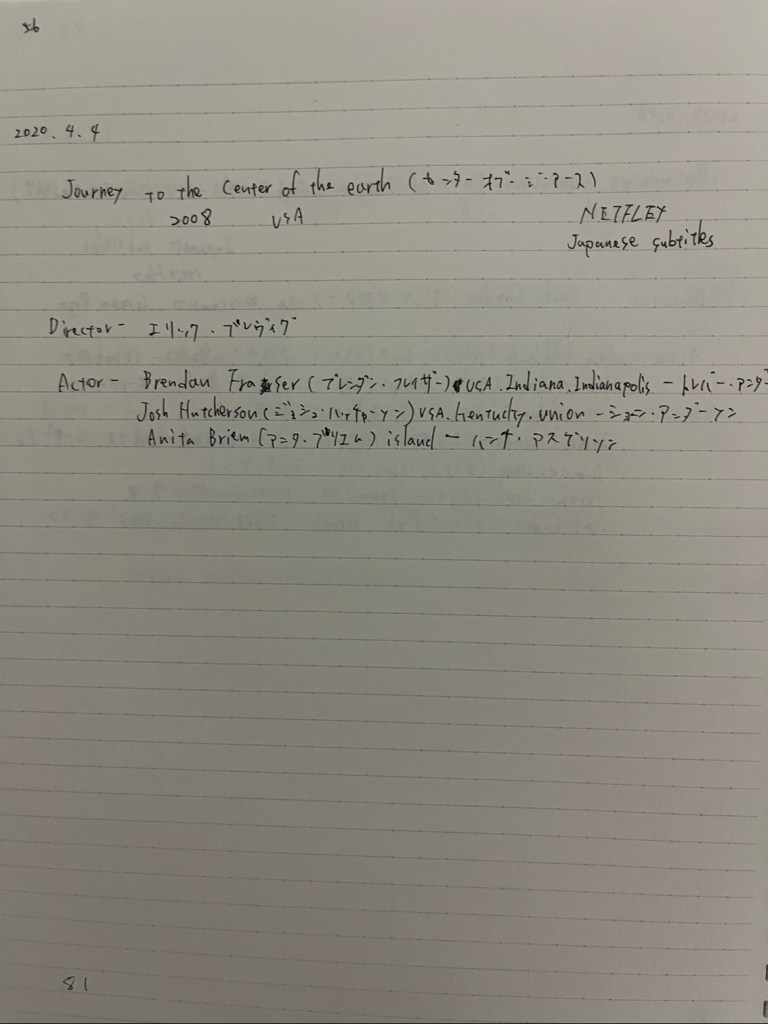 56
2020.4.4
Journey to the Center of the earth (センター・オブ・ジ・アース)
2008 USA NETFLEX
Japanese subtitles
Director - エリック・ブレヴィグ
Actor - Brendan Fraser (ブレンダン・フレイザー) USA.Indiana.Indianapolis - トレバー・アンダ-
Josh Hutcherson (ジョシュ・ハッチャーソン) USA.kentucky.union - ショーン・アンダーソン
Anita Briem (アニタ・ブリエム) island - ハンナ・アスゲリソン
81